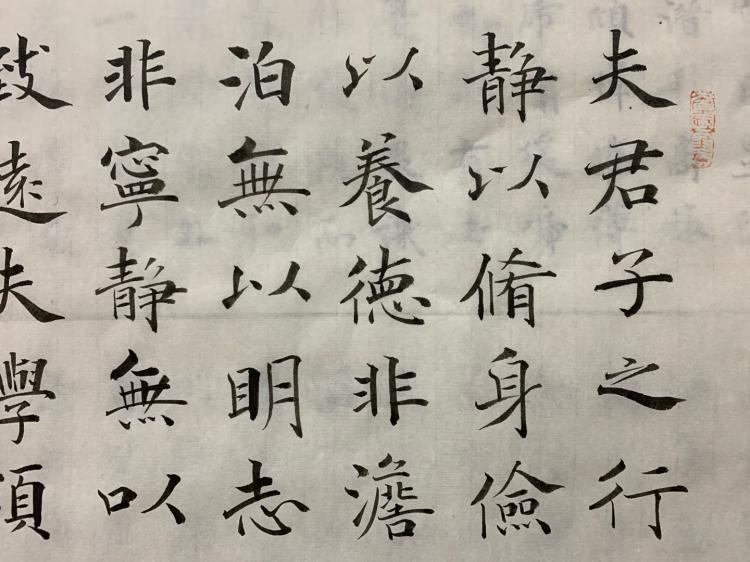 夫君子之行
静以脩身儉
以養德非澹
泊無以明志
非寧静無以
致遠夫學須